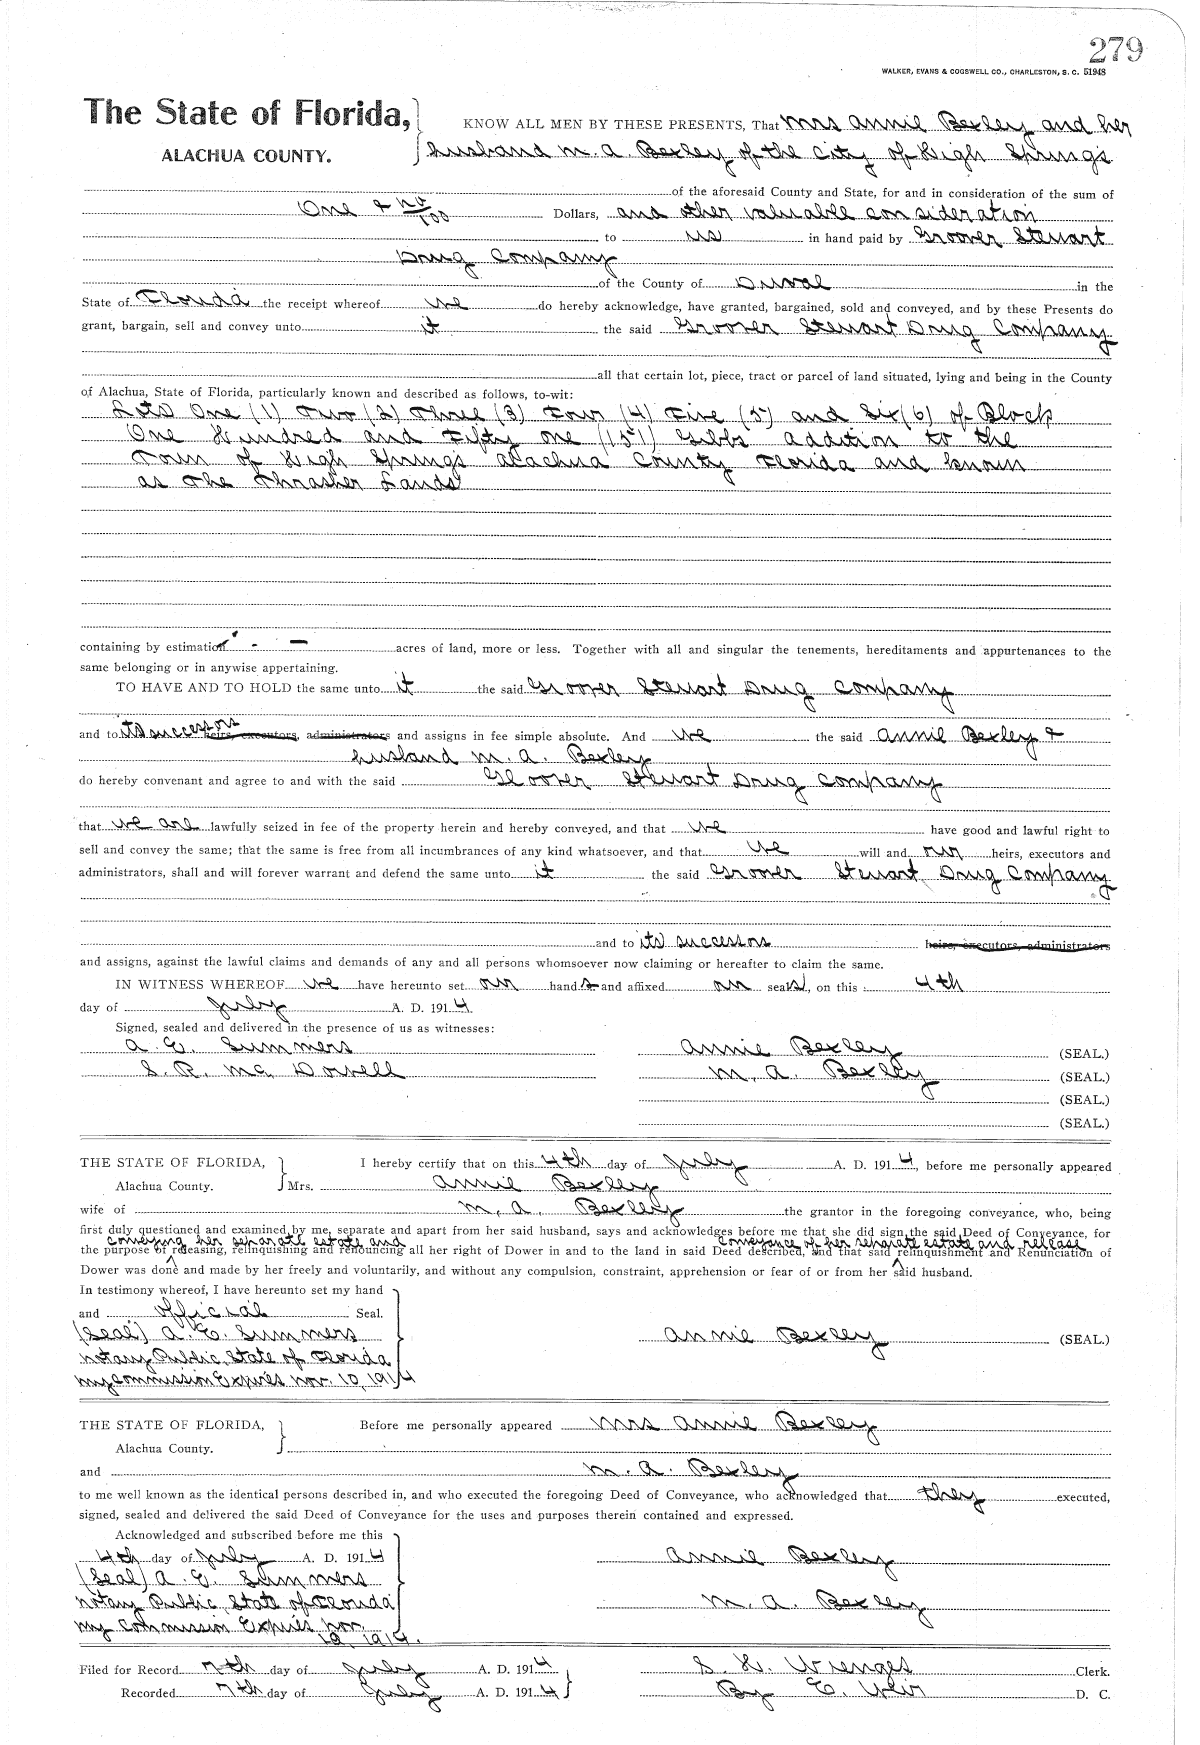 279
WALKER, EVANS & COGSWELL CO., CHARLESTON, S. C. 51948
The State of Florida,
ALACHUA COUNTY.
KNOW ALL MEN BY THESE PRESENTS, That Mrs Annie Bexley and her
husband M. A. Bexley of the City of High Springs
of the aforesaid County and State, for and in consideration of the sum of
One & no/100 Dollars, and other valuable consideration
to us in hand paid by Groover Stewart
Drug Company
of the County of Duval in the
State of Florida the receipt whereof we do hereby acknowledge, have granted, bargained, sold and conveyed, and by these Presents do
grant, bargain, sell and convey unto it the said Groover Stewart Drug Company
all that certain lot, piece, tract or parcel of land situated, lying and being in the County
of Alachua, State of Florida, particularly known and described as follows, to-wit:
Lots One (1) Two (2) Three (3) Four (4) Five (5) and Six (6) of Block
One Hundred and Fifty one (151) Gibbs addition to the
Town of High Springs Alachua County Florida and known
as the Thrasher Lands
containing by estimation - - acres of land, more or less. Together with all and singular the tenements, hereditaments and appurtenances to the
same belonging or in anywise appertaining.
TO HAVE AND TO HOLD the same unto it the said Groover Stewart Drug Company
and to its successors heirs, executors, administrators and assigns in fee simple absolute. And we the said Annie Bexley &
husband M. A. Bexley
do hereby convenant and agree to and with the said Groover Stewart Drug Company
that we are lawfully seized in fee of the property herein and hereby conveyed, and that we have good and lawful right to
sell and convey the same; that the same is free from all incumbrances of any kind whatsoever, and that we will and our heirs, executors and
administrators, shall and will forever warrant and defend the same unto it the said Groover Stewart Drug Company
and to its successors heirs, executors, administrators
and assigns, against the lawful claims and demands of any and all persons whomsoever now claiming or hereafter to claim the same.
IN WITNESS WHEREOF we have hereunto set our hands and affixed our seals, on this 4th
day of July A. D. 1914.
Signed, sealed and delivered in the presence of us as witnesses:
A. E. Summers Annie Bexley (SEAL.)
S. R. Mc Dowell M. A. Bexley (SEAL.)
(SEAL.)
(SEAL.)
THE STATE OF FLORIDA, I hereby certify that on this 4th day of July A. D. 1914, before me personally appeared
Alachua County. Mrs. Annie Bexley
wife of M. A. Bexley the grantor in the foregoing conveyance, who, being
first duly questioned and examined by me, separate and apart from her said husband, says and acknowledges before me that she did sign the said Deed of Conveyance, for
conveying her separate estate and conveyance of her separate estate and release
the purpose of releasing, relinquishing and renouncing all her right of Dower in and to the land in said Deed described, and that said relinquishment and Renunciation of
Dower was done and made by her freely and voluntarily, and without any compulsion, constraint, apprehension or fear of or from her said husband.
In testimony whereof, I have hereunto set my hand
and official Seal.
(Seal) A. E. Summers Annie Bexley (SEAL.)
Notary Public, State of Florida
My Commission Expires Nov. 10, 1914
THE STATE OF FLORIDA, Before me personally appeared Mrs Annie Bexley
Alachua County.
and M. A. Bexley
to me well known as the identical persons described in, and who executed the foregoing Deed of Conveyance, who acknowledged that they executed,
signed, sealed and delivered the said Deed of Conveyance for the uses and purposes therein contained and expressed.
Acknowledged and subscribed before me this
4th day of July A. D. 1914 Annie Bexley
(Seal) A. E. Summers
Notary Public, State of Florida M. A. Bexley
My Commission Expires Nov.
10, 1914.
Filed for Record 7th day of July A. D. 1914 S. H. Wienges Clerk.
Recorded 7th day of July A. D. 1914 By E. Weir D. C.